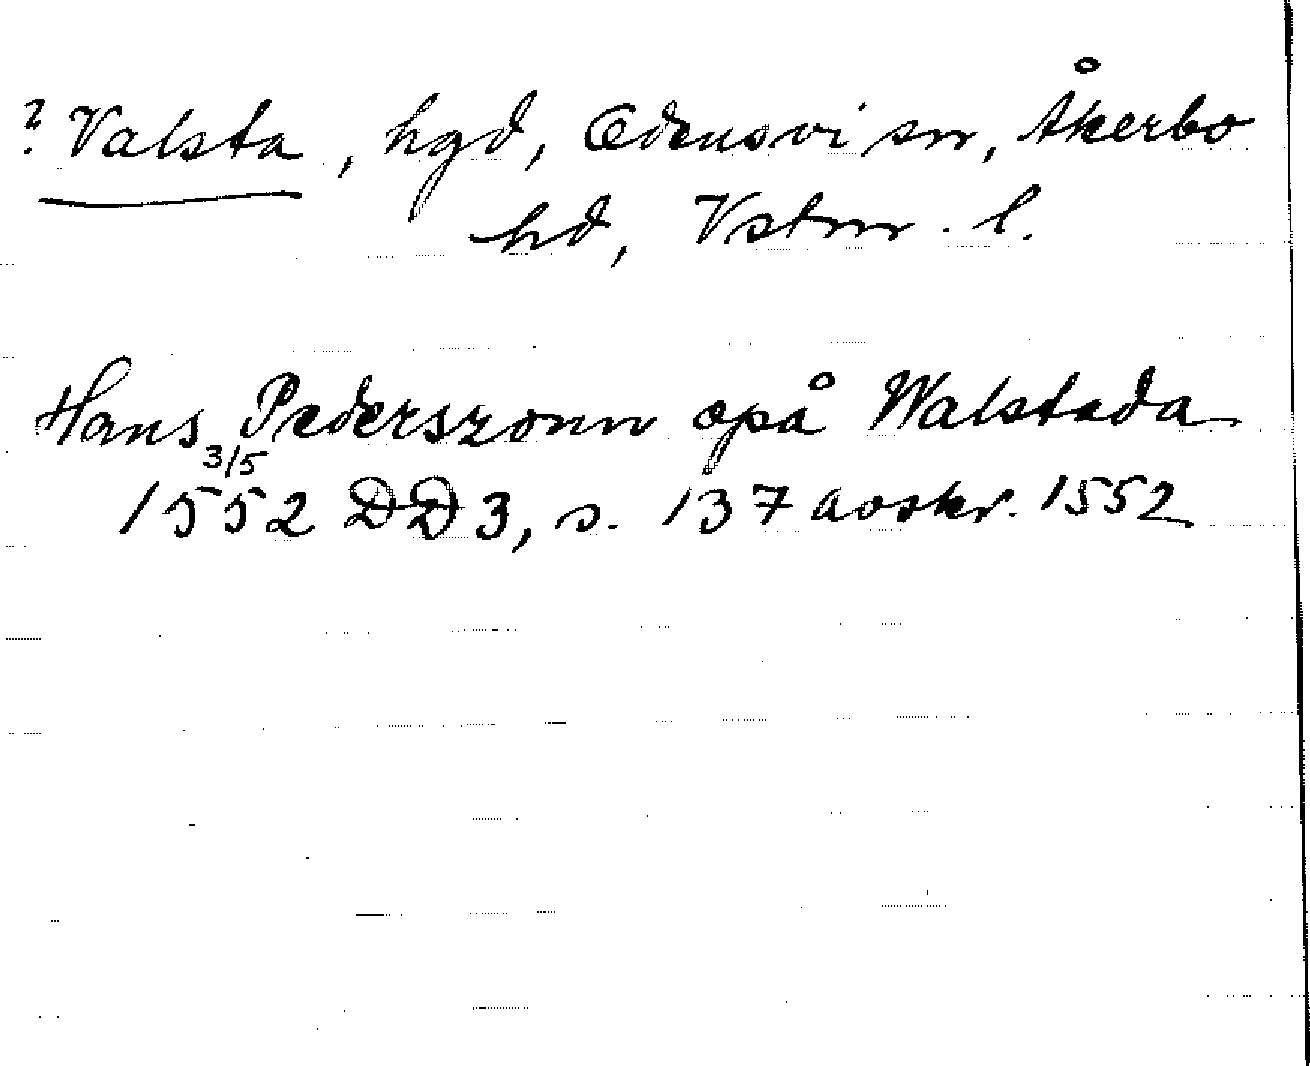 ? Valsta, hgd, Odensvi sn, Åkerbo
hd, Vstm. l.
Hans Pederszonn opå Walstada
3/5
1552 DD 3, s. 137 avskr. 1552